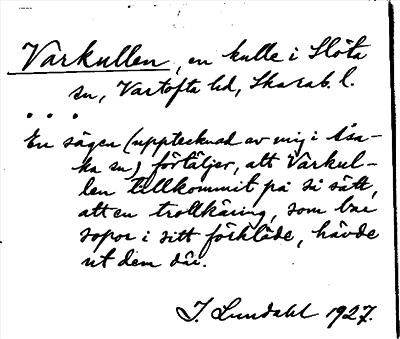 Varkullen, en kulle i Slöta
sn, Vartofta hd, Skarab. l.
...
En sägen (upptecknad av mig i Åsa-
ka sn) förtäljer, att Varkul-
len tillkommit på si sätt,
att en trollkäring, som bar
sopor i sitt förkläde, hävde
ut dem där.
J. Lundahl 1927.